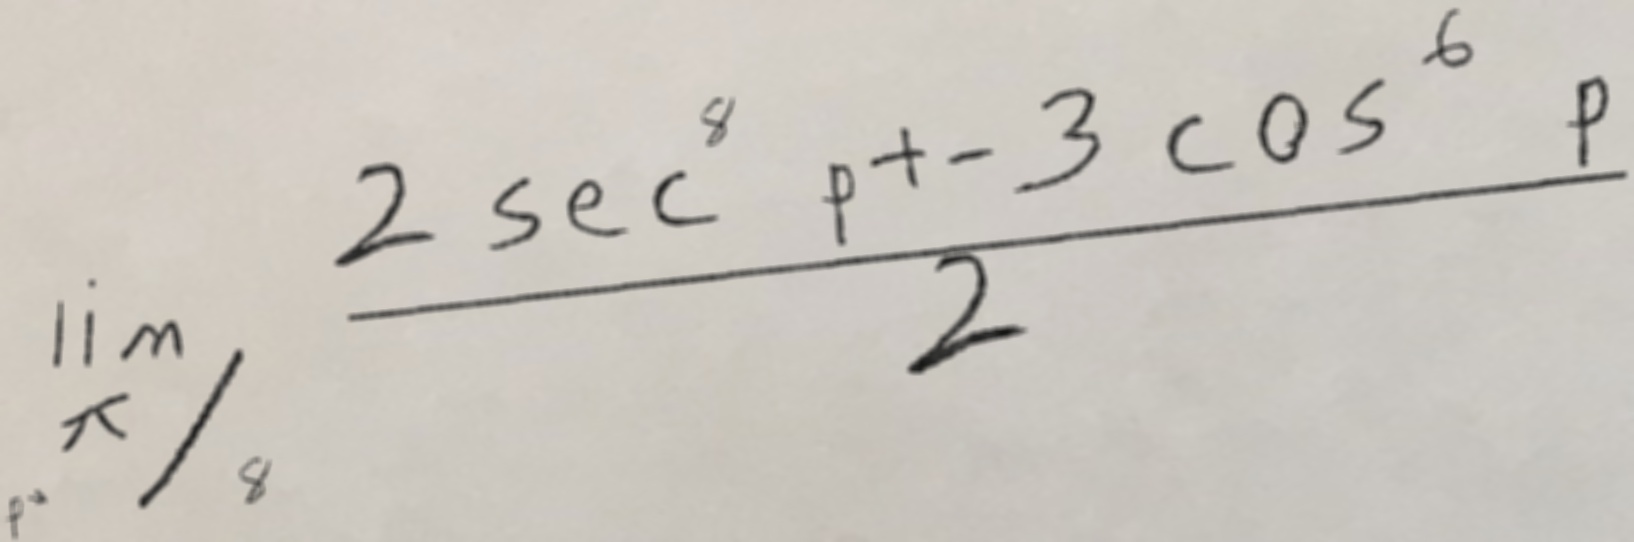 \lim_{p \to \pi/8} \frac{2 \sec^8 p + -3 \cos^6 p}{2}